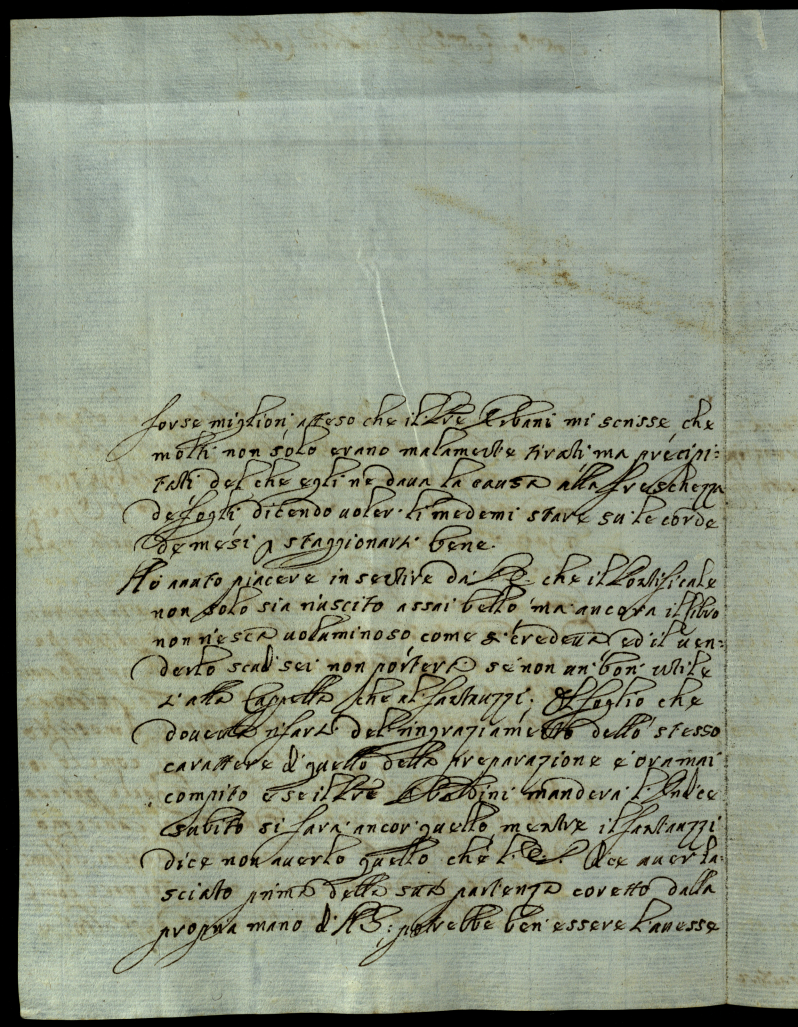 forse migliori, atteso che il Pre Urbani mi scrisse, che
molti non solo erano malamente tirati ma precipi:
tati del che egli ne dava la causa alla freschezza
de fogli dicendo voler li medemi stare su le corde
de mesi p staggionarli bene.
Hò avuto piacere in sentire da che il Pontificale
non solo sia riuscito assai bello ma ancora il libro
non riesca voluminoso come si credeva ed il ven:
derlo scudi sei non porterà se non un bon utile
e alla Cappella che al Fantauzzi; Il foglio che
doveva rifarsi del ringraziamento dello stesso
carattere di quello della preparazione è oramai
compito e se il Pre mandera l'Indice
subito si farà ancor quello, mentre il Fantauzzi
dice non averlo quello che dice aver la:
sciato prima della sua partenza coretto dalla
propria mano di potrebbe ben essere l'avesse